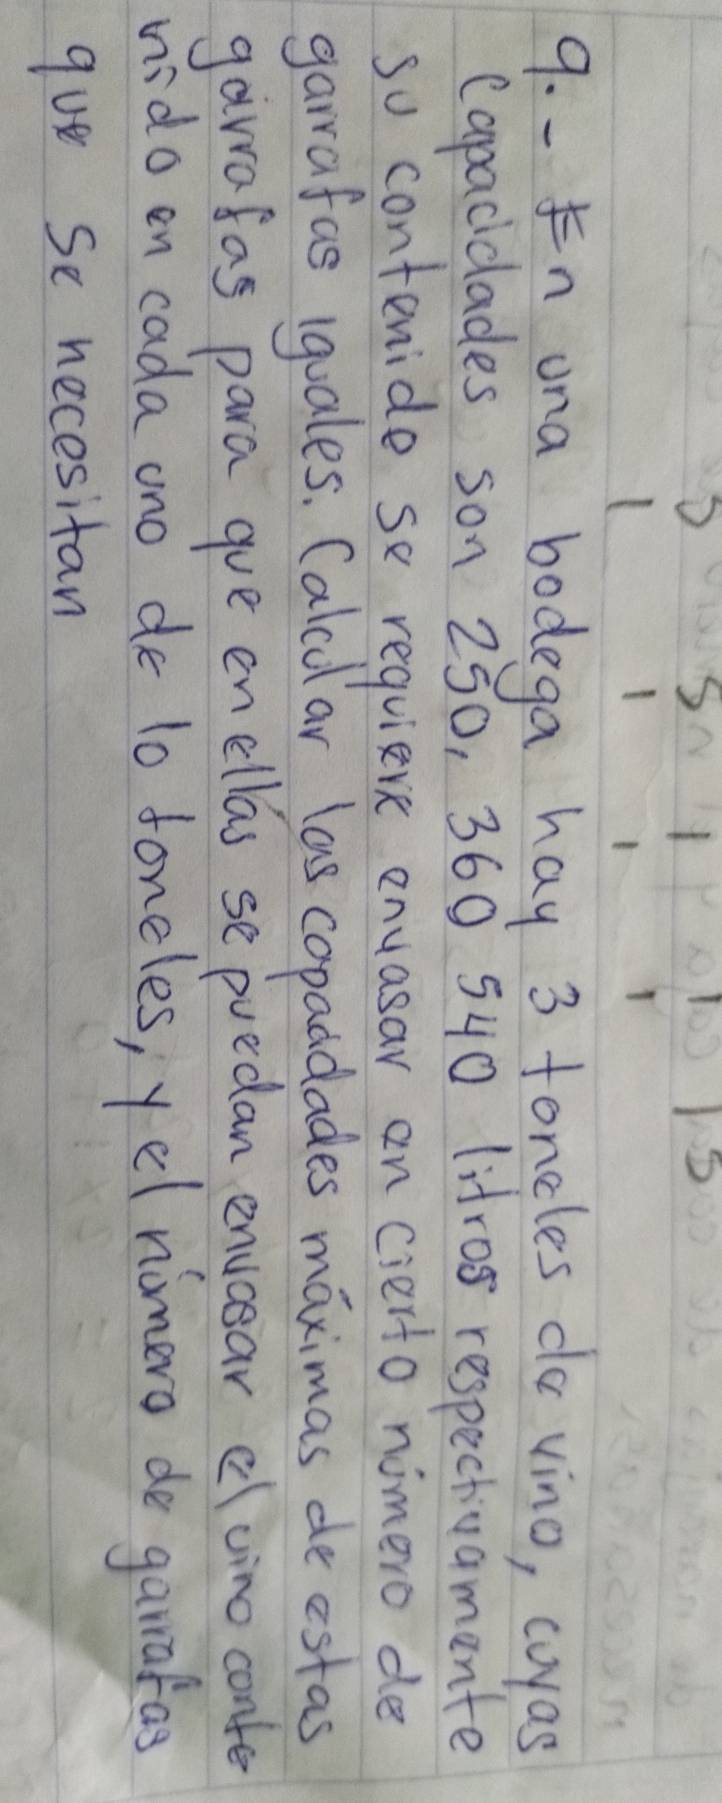 5 5 1 1 5
1 1 1 1
9.- En una bodega hay 3 toneles de vino, cuyas
Capacidades son 250, 360 540 litros respectivamente
su contenido se requiere envasar en cierto número de
garrafas iguales. Calcular las capacidades máximas de estas
garrafas para que en ellas se puedan envasar el vino conte
nido en cada uno de lo toneles, y el número de garrafas
que se necesitan